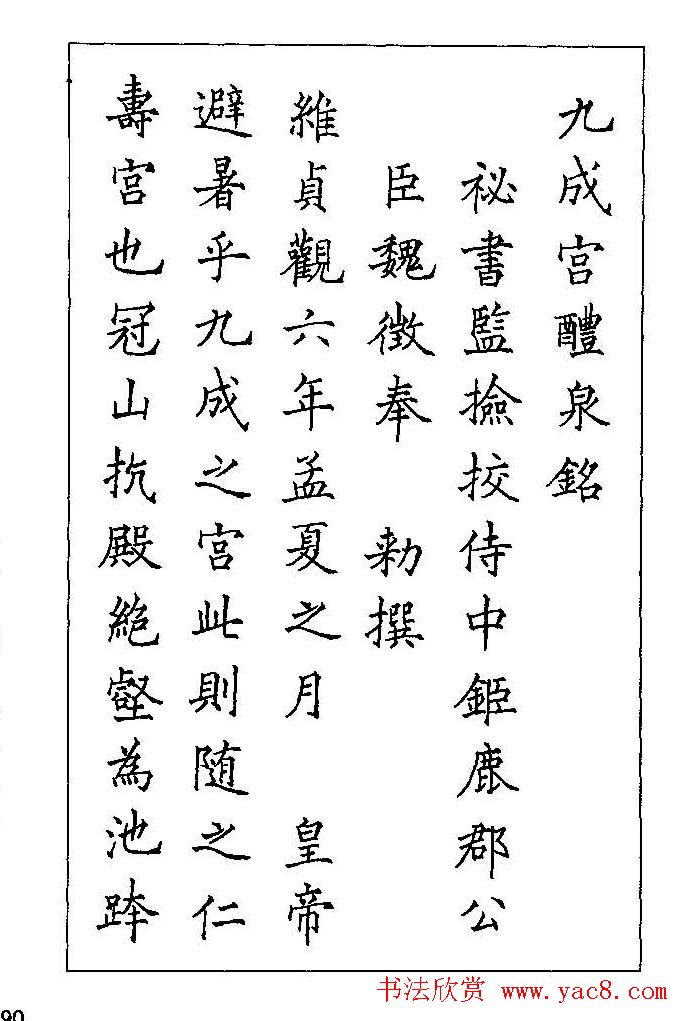 九成宫醴泉銘
祕書監撿挍侍中鉅鹿郡公
臣魏徵奉 勑撰
維貞觀六年孟夏之月 皇帝
避暑乎九成之宫此則随之仁
壽宫也冠山抗殿絶壑為池跨
90
书法欣赏 www.yac8.com